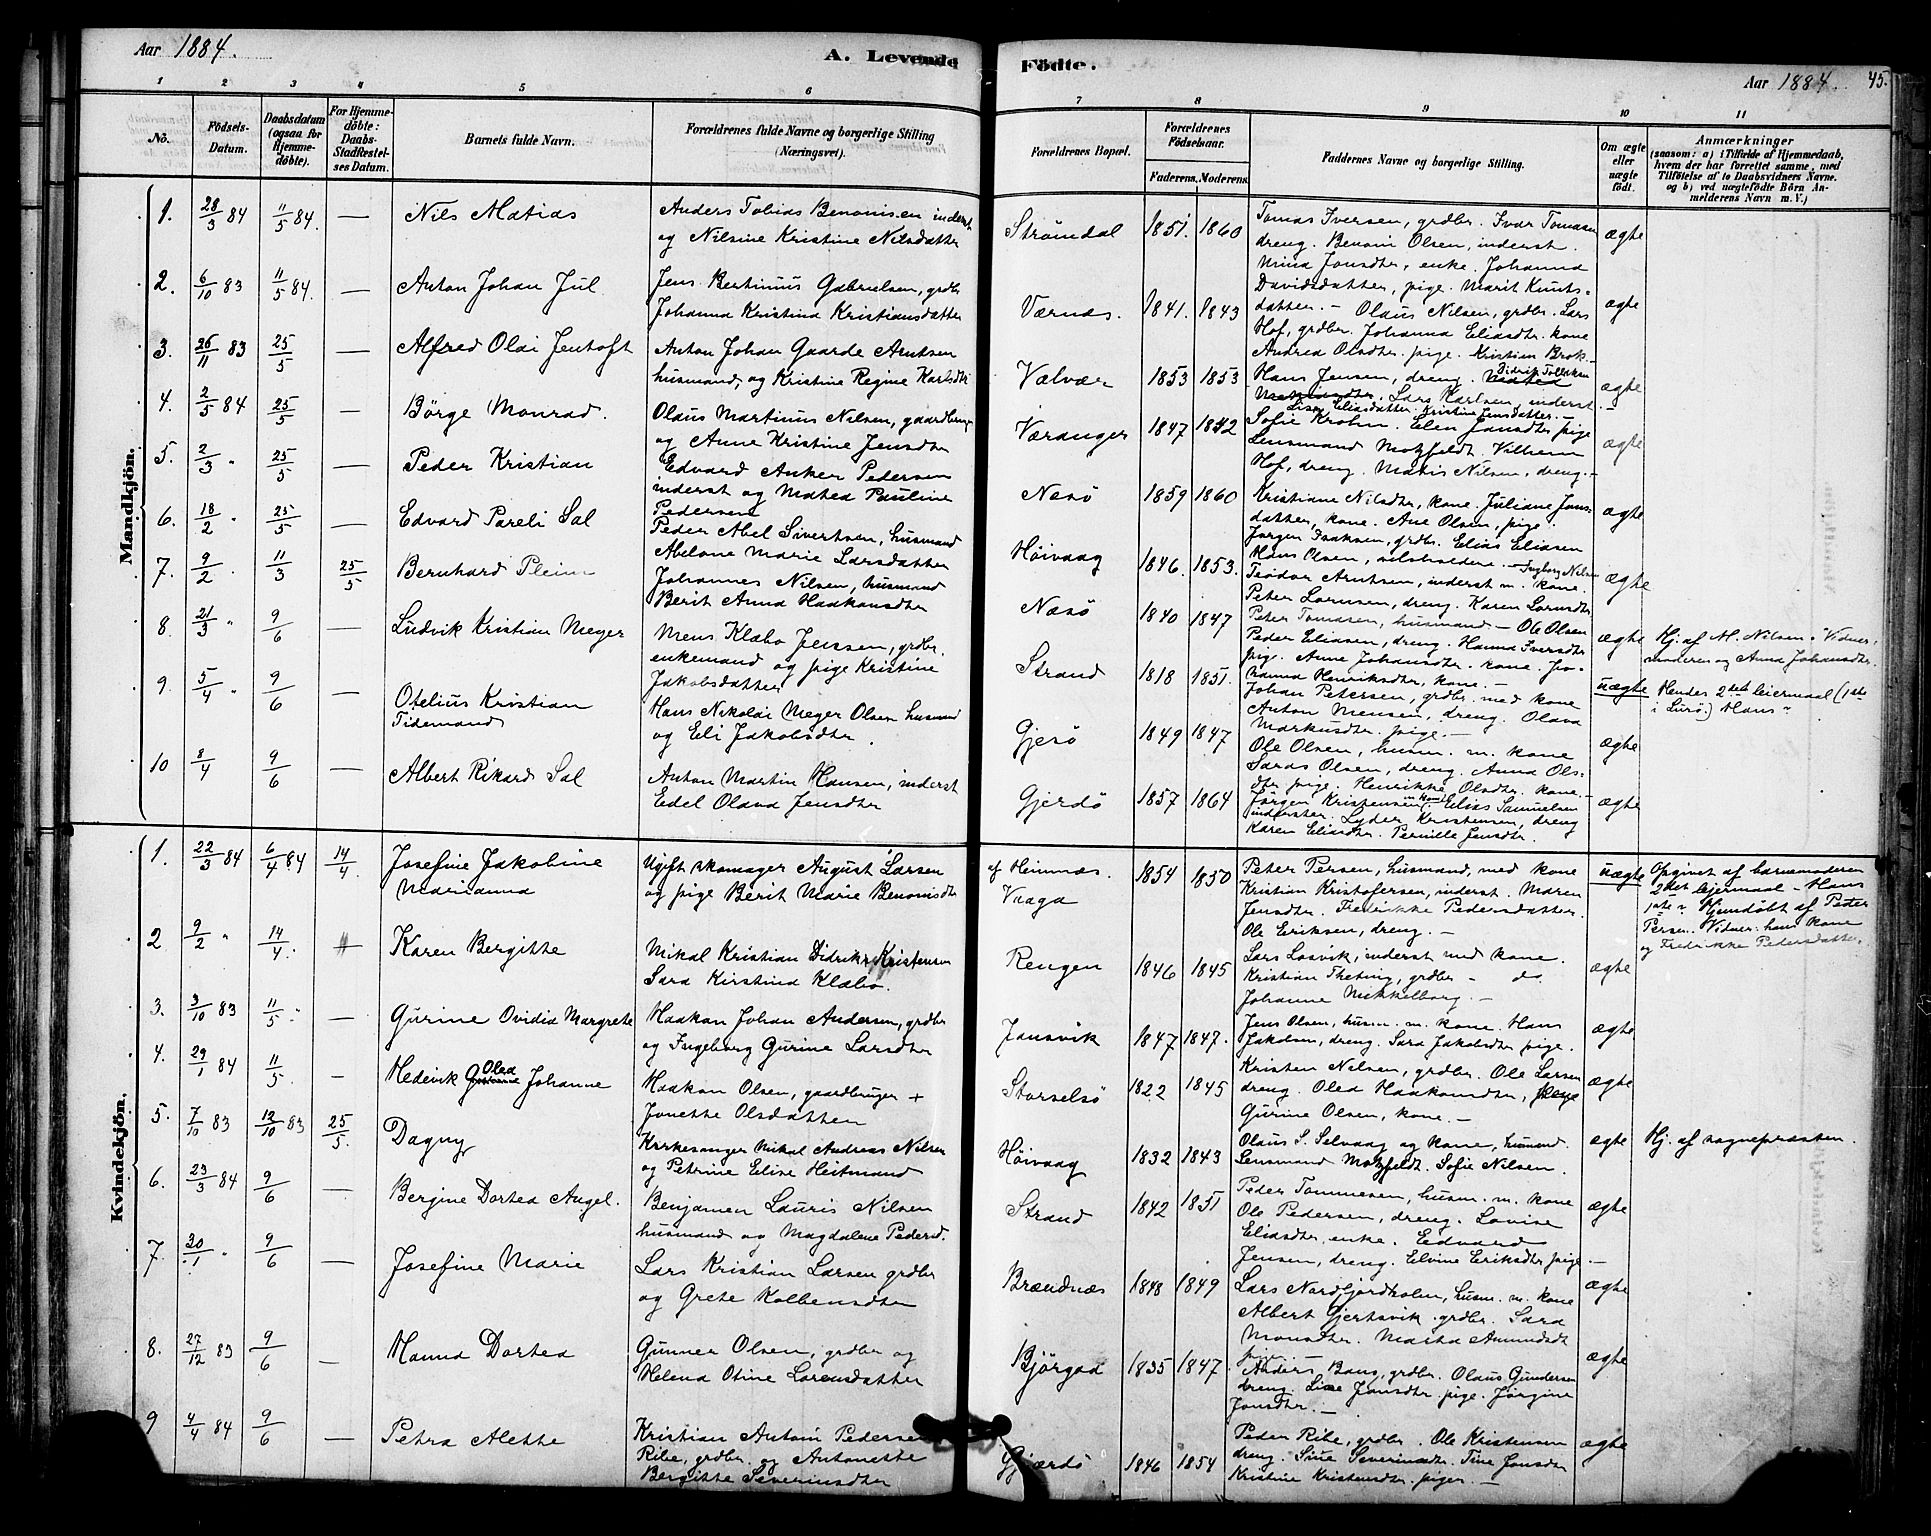 Aar 1884.
A. Levende Födte.
Aar 1884. 45.
1 2 3 4 5 6 7 8 9 10 11
No.
Födsels-Datum.
Daabsdatum (ogsaa for Hjemme-döbte).
For Hjemme-döbte: Daabs-Stadfæstel-ses Datum.
Barnets fulde Navn.
Forældrenes fulde Navne og borgerlige Stilling
(Næringsvei).
Forældrenes Bopæl.
Forældrenes Födselsaar.
Faderens. Moderens.
Faddernes Navne og borgerlige Stilling.
Om ægte eller uægte født.
Anmærkninger
(saasom: a) i Tilfælde af Hjemmedaab,
hvem der har forrettet samme, med
Tilföielse af to Daabsvidners Navne.
og b) ved uægtefödte Börn An-
melderens Navn m. V.)
Mandkjön.
1. 28/3 84 11/5 84. — Nils Matias
Anders Tobias Benonisen inderst
og Nilsine Kristine Nilsdatter
Strömdal 1851. 1860
Tomas Iversen, grdbr. Ivar Tomasen
dreng. Benoni Olsen, inderst.
Mina Jonsdtr, enke. Johanna
Davidsdatter, pige. Marit Knuts-
datter. —
ægte
2. 6/10 83 11/5 84. — Anton Johan Jul
Jens Bertinius Gabrielsen, grdbr
Johanna Kristina Kristiansdatter
Værnæs. 1841. 1843
Olaus Nilsen, grdbr. Lars
Hof, grdbr. Johanna Eliasdtr. kone
Andrea Olsdtr. pige. Kristian Brok. —
ægte
3. 26/11 83 25/5 — Alfred Olai Jentoft
Anton Johan Gaarde Arntsen
husmand, og Kristine Regine Karlsdtr
Valvær 1853 1853
Hans Jensen, dreng. Didrik Tollaksen
Lars Karlsen, inderst. —
Lise Eliasdatter. Kristine Jensdatter. —
ægte
4. 2/5 84 25/5 — Börge Monrad.
Olaus Martinus Nilsen, gaardbruger
og Anne Kristine Jensdtr
Varanger 1847 1842
Sofie Krohn. Elen Jonsdtr pige
Lensmand Motzfeldt. Vilhelm
Hof, dreng. Matis Nilsen, dreng. —
ægte
5. 2/3 " 25/5 — Peder Kristian
Edvard Anker Pedersen
inderst og Matea Pauline
Pedersen
Næsö 1859 1860
Kristiane Nilsdtr, kone. Juliane Jons-
datter, kone. Ane Olsen, pige.
Jörgen Isaksen, grdbr. Elias Eliasen
ægte
6. 18/2 " 25/5 — Edvard Pareli Sal
Peder Abel Sivertsen, husmand
Abelone Marie Larsdatter
Höivaag 1846. 1853.
Hans Olsen, selsholdere. — Ingborg Nilsen
Teodor Arntsen, inderst m. kone.
ægte
7. 9/2 " 11/3 25/5 Bernhard Pleim
Johannes Nilsen, husmand
Berit Anna Haakonsdtr
Næsö 1840 1847
Peter Lornsen, dreng. Karen Lornsdtr
Peter Tomassen, husmand — Ole Olsen
ægte
Hj. af M. Nilsen. Vidner:
moderen og Anna Johansdtr.
8. 21/3 " 9/6 — Ludvik Kristian Meyer
Mens Klæbo Jenssen, grdbr.
enkemand og pige Kristine
Jakobsdatter
Strand 1818 1851.
Peder Eliasen, dreng. Hanna Iversdtr
pige. Anne Johansdtr. kone. Jo-
hanna Henriksdtr, kone. —
uægte
Hendes 2det leiermaal (1ste
i Lurö.) Hans "
9. 5/4 " 9/6 — Otelius Kristian
Tidemand
Hans Nikolai Meyer Olsen husmand
og Eli Jakobsdtr.
Gjesö 1849 1847
Johan Petersen, grdbr. med kone
Anton Mensen, dreng. Olava
Markusdtr. pige. —
ægte
10 8/4 9/6 — Albert Rikard Sal
Anton Martin Hansen, inderst
Edel Olava Jensdtr
Gjerdö 1857 1864
Ole Olsen, husm. m. kone
Lars Olsen, dreng. Anna Ols-
dtr pige. Henrikke Olsdtr. kone. —
Jörgen Kristensen m. kone. Elias Samuelsen
inderster. Lyder Kristensen, dreng
Karen Eliasdtr. Pernille Jensdtr.
ægte
Kvindekjön.
1. 22/3 84 6/4 84 14/4. Josefine Jakobine
Marianna
Ugift skomager August Larsen
og pige Berit Marie Benonisdtr
af Heimnæs.
Vaaga 1854 1850
Peter Persen, husmand, med kone
Kristian Kristofersen, inderst. Maren
Jensdtr. Fredrikke Pedersdatter.
Ole Eriksen, dreng. —
uægte
Opgivet af barnemoderen
2det leiermaal — Hans
1ste ". Hjemdöbt af Peter
Persen. Vidner: hans kone
og Fredrikke Pedersdatter.
2 9/2 " 14/4. Karen Bergitte
Mikal Kristian Didrik Kristensen
Sara Kirstina Klæbo.
Rengen 1846 1845
Lars Losvik, inderst med kone.
Kristian Theting, grdbr — do.
Johanne Mikkelborg. —
ægte
3. 3/10 83 11/5 " — Gurine Ovidia Margrete
Haakon Johan Andersen, grdbr
og Ingeborg Gurine Larsdtr
Jonsvik 1847 1847.
Jens Olsen, husm. m. kone. Hans
Jakobsen, dreng. Sara Jakobsdtr pige.
ægte
4. 29/1 84 11/5. — Hedevik Olea Johanne
Haakon Olsen, gaardbruger +
Jonette Olsdatter
Storselsö 1822 1845
Kristen Nilsen, grdbr. Ole Larsen
dreng. Olea Haakonsdtr, pige
Gurine Olsen, kone. —
ægte
5. 7/10 83 12/10 83 25/5. Dagny
Kirkesanger Mikal Andreas Nilsen
og Petrine Elise Heitmand
Höivaag 1832 1843
Olaus S. Selvaag og kone, husmd.
Lensmand Motzfeldt. Sofie Nilsen.
ægte
Hj. af sognepræsten.
6. 23/3 84 9/6 — Bergine Dortea Angel.
Benjamen Lauris Nilsen
husmand og Magdalene Pedersd.
Strand 1842 1851
Peder Tommesen, husm. m. kone
Ole Pedersen, dreng. Lovise
Eliasdtr, enke. Edvard
Jensen, dreng. Elvine Eriksdtr pige. —
ægte
7. 30/1 " 9/6 — Josefine Marie
Lars Kristian Larsen grdbr
og Grete Kolbensdtr
Brændnæs 1848 1849
Lars Nordfjordholm, husm. m. kone
Albert Gjertsvik grdbr. Sara
Monsdtr. Marta Amundsdt
pige. —
ægte
8. 27/12 83 9/6 — Hanna Dortea
Gunner Olsen, grdbr og
Helena Otine Lorensdatter
Björgad 1835 1847.
Anders Bang, grdbr. Olaus Gundersen
dreng. Lise Jonsdtr. pige. Jörgine
Jonsdtr. —
ægte
9 4/4 84 9/6 — Petra Alette
Kristian Antoni Pedersen
Ribe, grdbr. og Antonette
Bergitte Severinsdtr
Gjærdö 1846 1854
Peder Ribe, grdbr. Ole Kristensen
dreng. Sine Severinsdtr. Tine Jonsdtr
Kristine Kristensdtr. piger. —
ægte